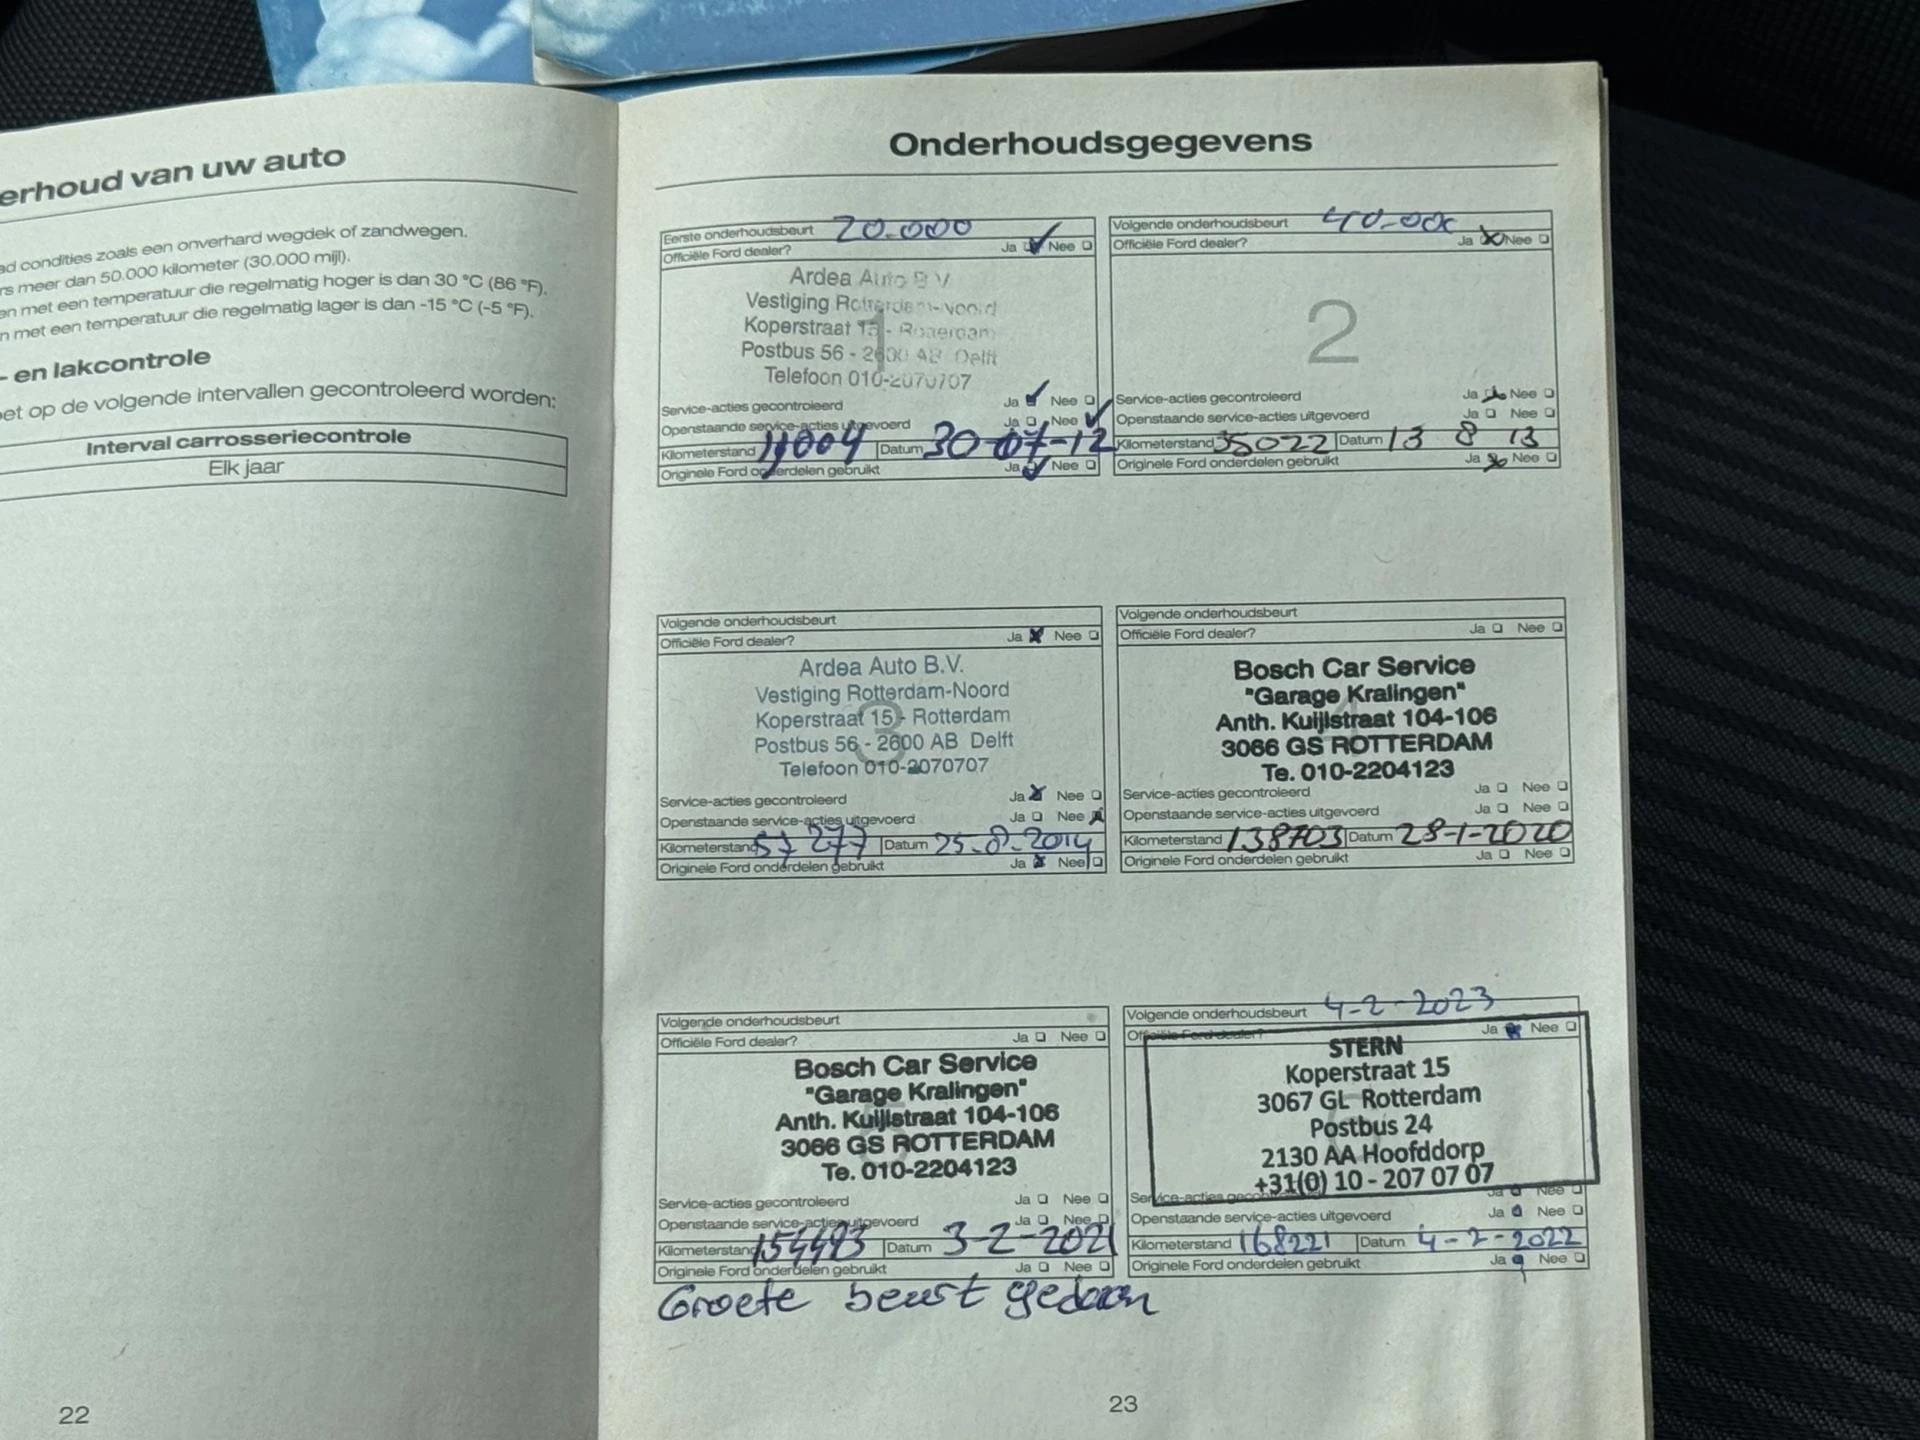 erhoud van uw auto
ad condities zoals een onverhard wegdek of zandwegen.
rs meer dan 50.000 kilometer (30.000 mijl).
en met een temperatuur die regelmatig hoger is dan 30 °C (86 °F).
n met een temperatuur die regelmatig lager is dan -15 °C (-5 °F).
- en lakcontrole
oet op de volgende intervallen gecontroleerd worden:
Interval carrosseriecontrole
Elk jaar
22
Onderhoudsgegevens
Eerste onderhoudsbeurt 20.000
Officiële Ford dealer? Ja Nee
1
Ardea Auto B V
Vestiging Rotterdam-Noord
Koperstraat 15 - Rotterdam
Postbus 56 - 2600 AB Delft
Telefoon 010-2070707
Service-acties gecontroleerd Ja Nee
Openstaande service-acties uitgevoerd Ja Nee
Kilometerstand Datum 30-07-12
Originele Ford onderdelen gebruikt Ja Nee
Volgende onderhoudsbeurt 40.000
Officiële Ford dealer? Ja Nee
2
Service-acties gecontroleerd Ja Nee
Openstaande service-acties uitgevoerd Ja Nee
Kilometerstand 35022 Datum 13 8 13
Originele Ford onderdelen gebruikt Ja Nee
Volgende onderhoudsbeurt
Officiële Ford dealer? Ja Nee
3
Ardea Auto B.V.
Vestiging Rotterdam-Noord
Koperstraat 15 - Rotterdam
Postbus 56 - 2600 AB Delft
Telefoon 010-2070707
Service-acties gecontroleerd Ja Nee
Openstaande service-acties uitgevoerd Ja Nee
Kilometerstand 57 277 Datum 25-8-2014
Originele Ford onderdelen gebruikt Ja Nee
Volgende onderhoudsbeurt
Officiële Ford dealer? Ja Nee
4
Bosch Car Service
"Garage Kralingen"
Anth. Kuijlstraat 104-106
3066 GS ROTTERDAM
Te. 010-2204123
Service-acties gecontroleerd Ja Nee
Openstaande service-acties uitgevoerd Ja Nee
Kilometerstand 138703 Datum 28-1-2020
Originele Ford onderdelen gebruikt Ja Nee
Volgende onderhoudsbeurt
Officiële Ford dealer? Ja Nee
Bosch Car Service
"Garage Kralingen"
Anth. Kuijlstraat 104-106
3066 GS ROTTERDAM
Te. 010-2204123
Service-acties gecontroleerd Ja Nee
Openstaande service-acties uitgevoerd Ja Nee
Kilometerstand 154493 Datum 3-2-2021
Originele Ford onderdelen gebruikt Ja Nee
Groete beurt gedaan
Volgende onderhoudsbeurt 4-2-2023
Officiële Ford dealer? Ja Nee
STERN
Koperstraat 15
3067 GL Rotterdam
Postbus 24
2130 AA Hoofddorp
+31(0) 10 - 207 07 07
Service-acties gecontroleerd Ja Nee
Openstaande service-acties uitgevoerd Ja Nee
Kilometerstand 168221 Datum 4-2-2022
Originele Ford onderdelen gebruikt Ja Nee
23